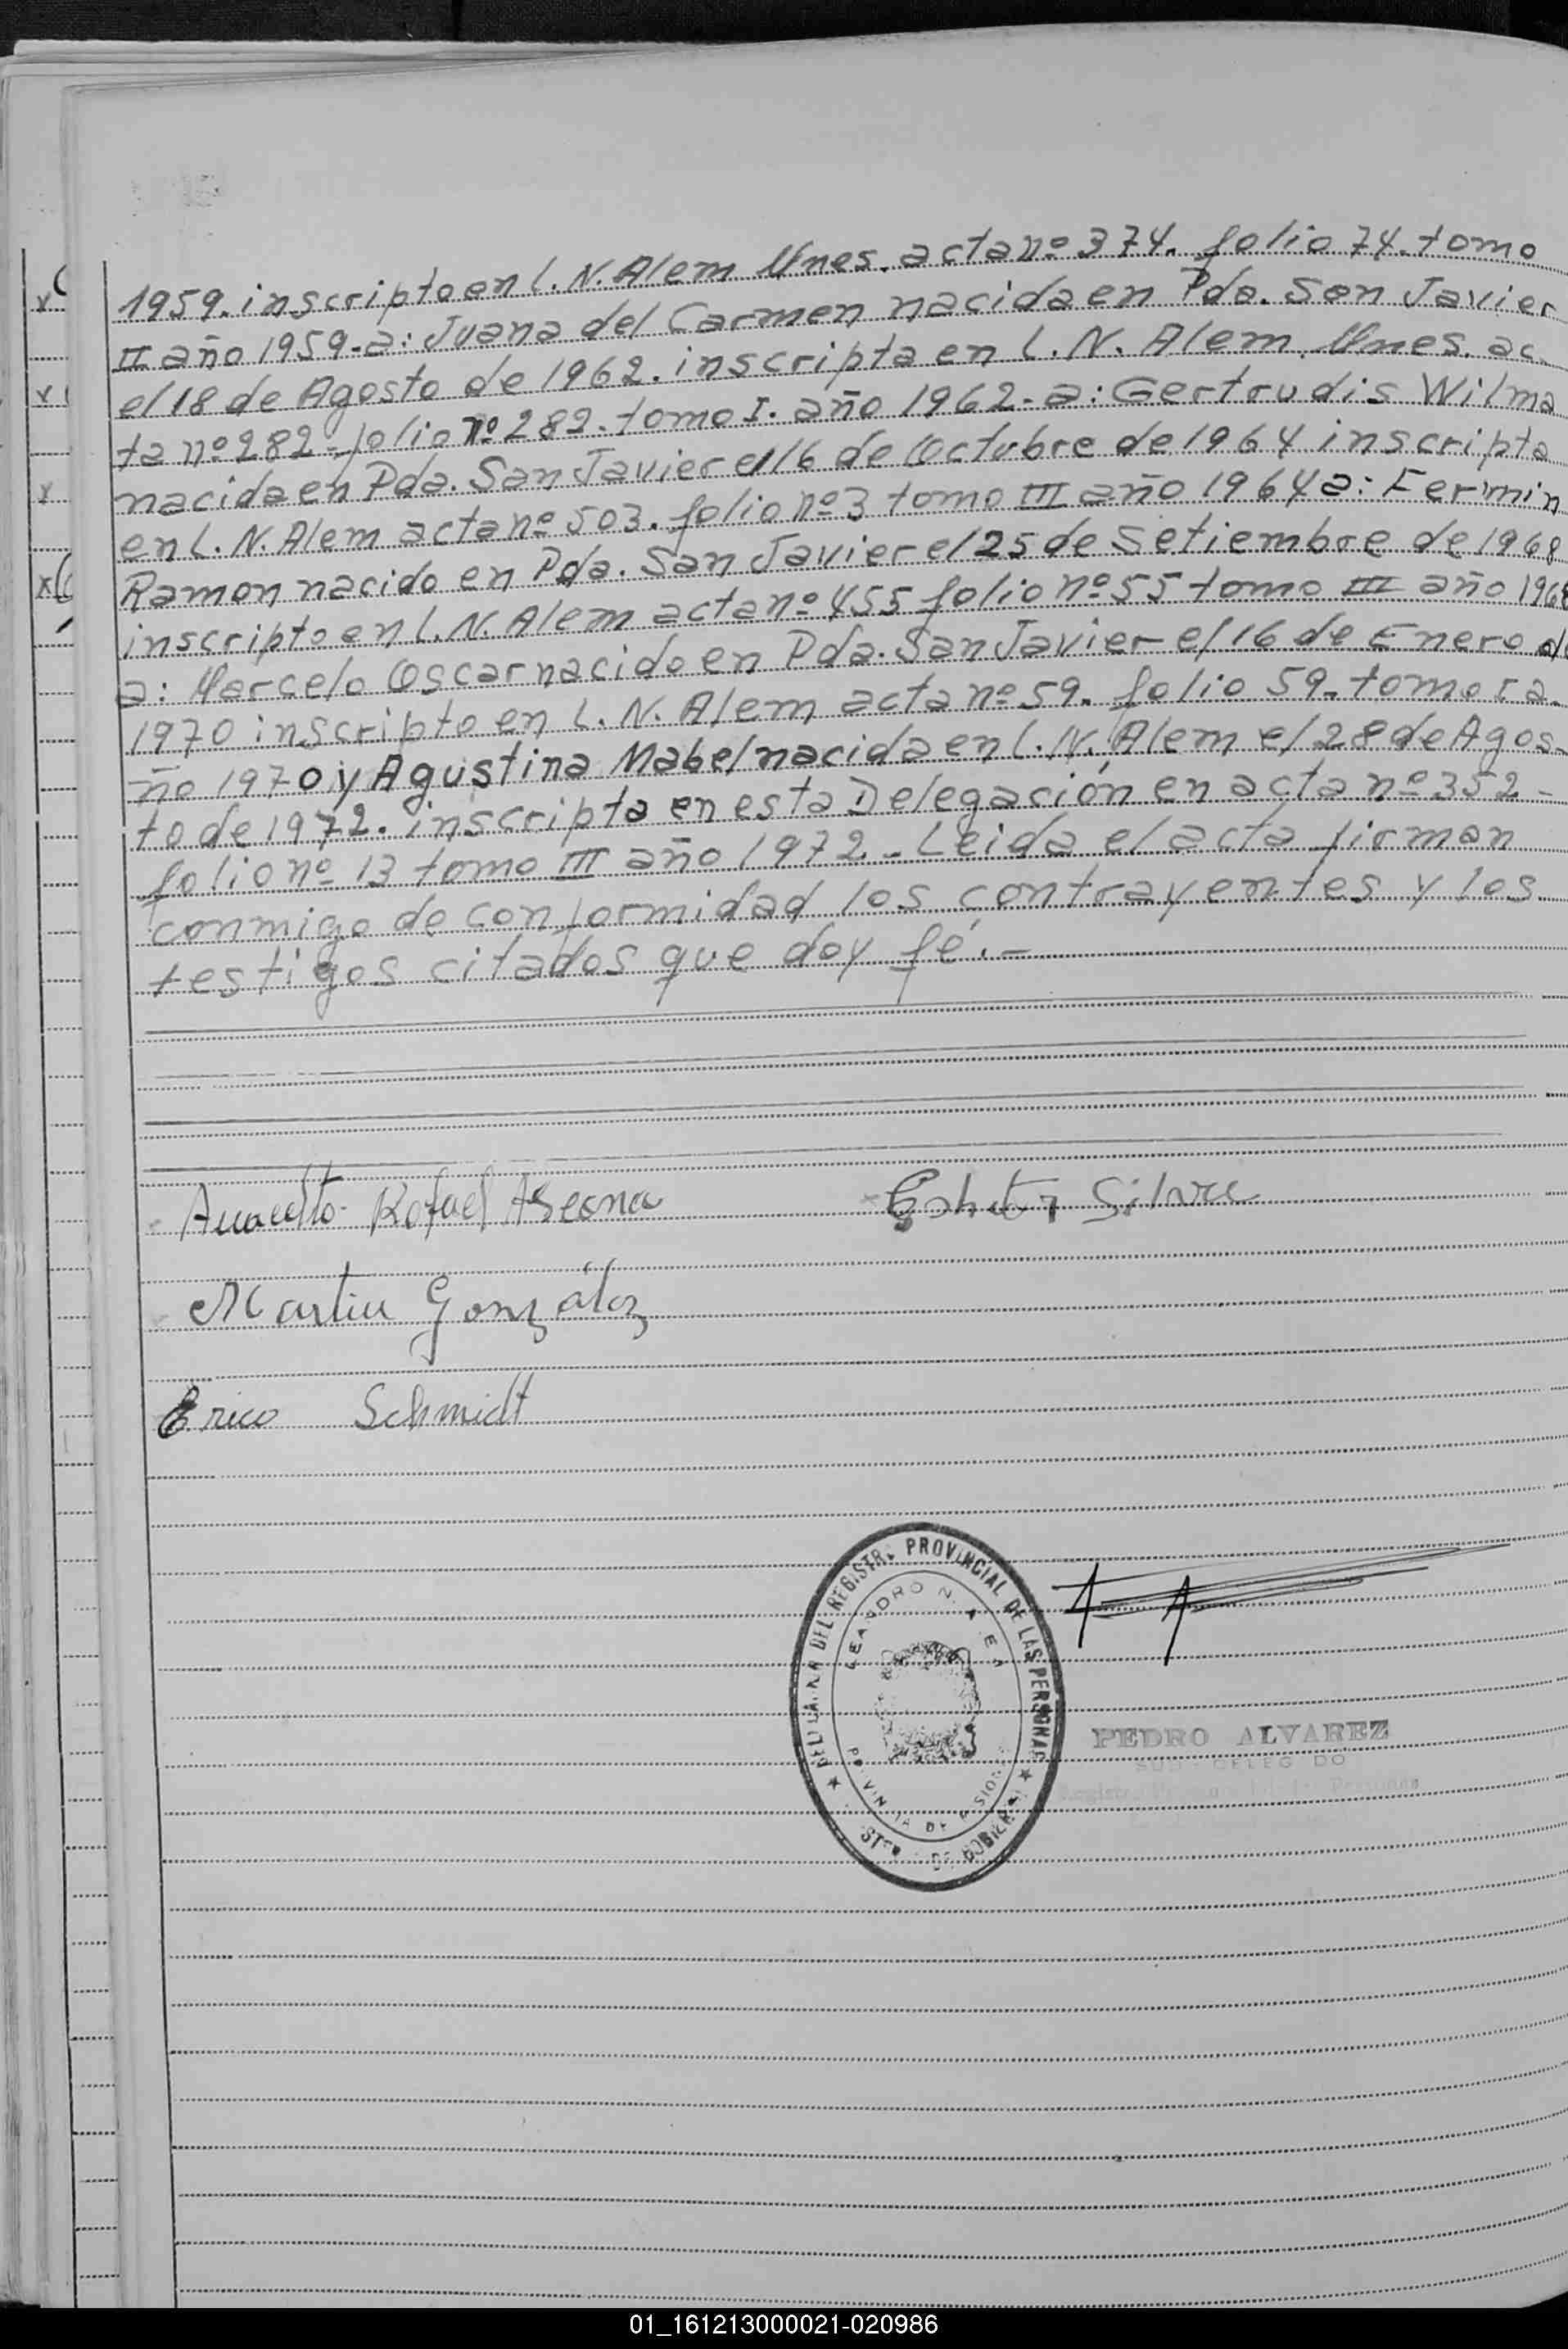 1959. inscripto en L. N. Alem Mnes. acta nº 374. folio 74. tomo
II año 1959.- a: Juana del Carmen nacida en Pda. San Javier
el 18 de Agosto de 1962. inscripta en L. N. Alem, Mnes. ac-
ta nº 282- folio nº 282. tomo I. año 1962- a: Gertrudis Wilma
nacida en Pda. San Javier el 16 de Octubre de 1964 inscripta
en L. N. Alem acta nº 503. folio nº 3 tomo III año 1964 a: Fermin
Ramon nacido en Pda. San Javier el 25 de Setiembre de 1968
inscripto en L. N. Alem acta nº 455 folio nº 55 tomo III año 1968
a: Marcelo Oscar nacido en Pda. San Javier el 16 de Enero de
1970 inscripto en L. N. Alem acta nº 59. folio 59. tomo I a-
ño 1970 y Agustina Mabel nacida en L. N. Alem el 28 de Agos-
to de 1972. inscripta en esta Delegación en acta nº 352-
folio nº 13 tomo III año 1972.- Leida el acta firman
conmigo de conformidad los contrayentes y los
testigos citados que doy fé.-
Rafael Silva
Martin González
Erico Schmidt
DEL REGISTRO PROVINCIAL DE LAS PERSONAS
LEANDRO N. ALEM
PROVINCIA DE MISIONES
DE GOBIERNO
PEDRO ALVAREZ
SUB-DELEGADO
Registro Provincial de las Personas
01_161213000021-020986